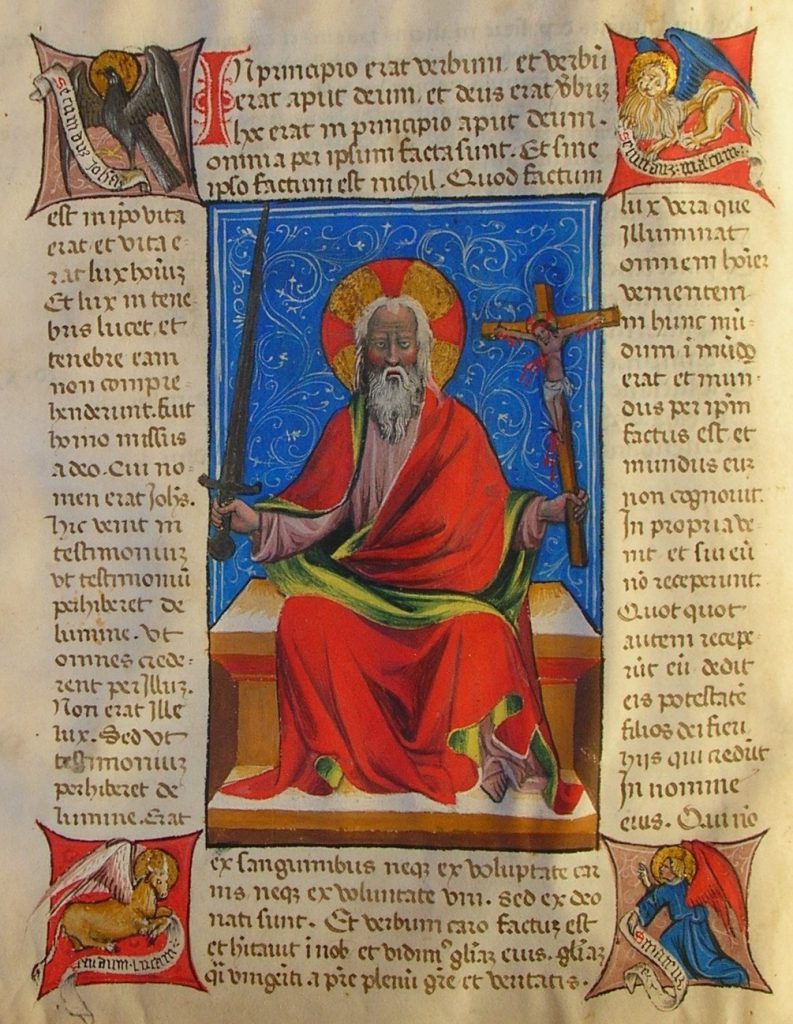 In principio erat verbum, et verbū
erat aput deum, et deus erat v̄buȝ
hoc erat in principio aput deum.
omnia per ipsum facta sunt. Et sine
ipso factum est nichil. Quod factum
est in ip̄o vita
erat et vita e-
rat lux hoīuȝ
Et lux in tene
bris lucet, et
tenebre eam
non compre-
henderunt. fuit
homo missus
a deo. Cui no-
men erat Joh̄s.
hic venit in
testimoniuȝ
vt testimoniū
perhiberet de
lumine. vt
omnes crede-
rent per illuȝ.
Non erat ille
lux. Sed vt
testimoniuȝ
perhiberet de
lumine. Erat
lux vera que
Illuminat
omnem hoīeȝ
venientem
in hunc mū-
dum ī mūdo
erat et mun-
dus per ip̄m
factus est et
mundus euȝ
non cognouit.
In propria ve-
nit et sui eū
nō receperunt.
Quot quot
autem recepe-
rūt eū dedit
eis potestatē
filios dei fieri
hiis qui credūt
In nomine
eius. Qui nō
ex sanguinibus neqȝ ex voluptate car
nis, neqȝ ex voluntate viri. sed ex deo
nati sunt. Et verbum caro factuȝ est
et hītauit ī nob et vidimꝰ glīaȝ eius. glīaȝ
q̄i vnigēiti a pr̄e plenū gr̄e et veritatis.
secunduȝ Joh̄eȝ
secunduȝ marcum
secundum Lucam